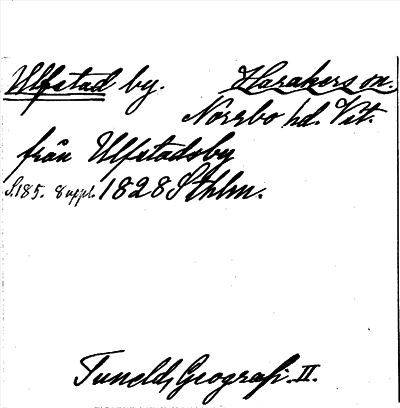 Ulfstad by. Harakers sn.
Norrbo hd. Vst.
från Ulfstadsby
S.185. 8 uppl. 1828 Sthlm.
Tunelds Geografi. II.